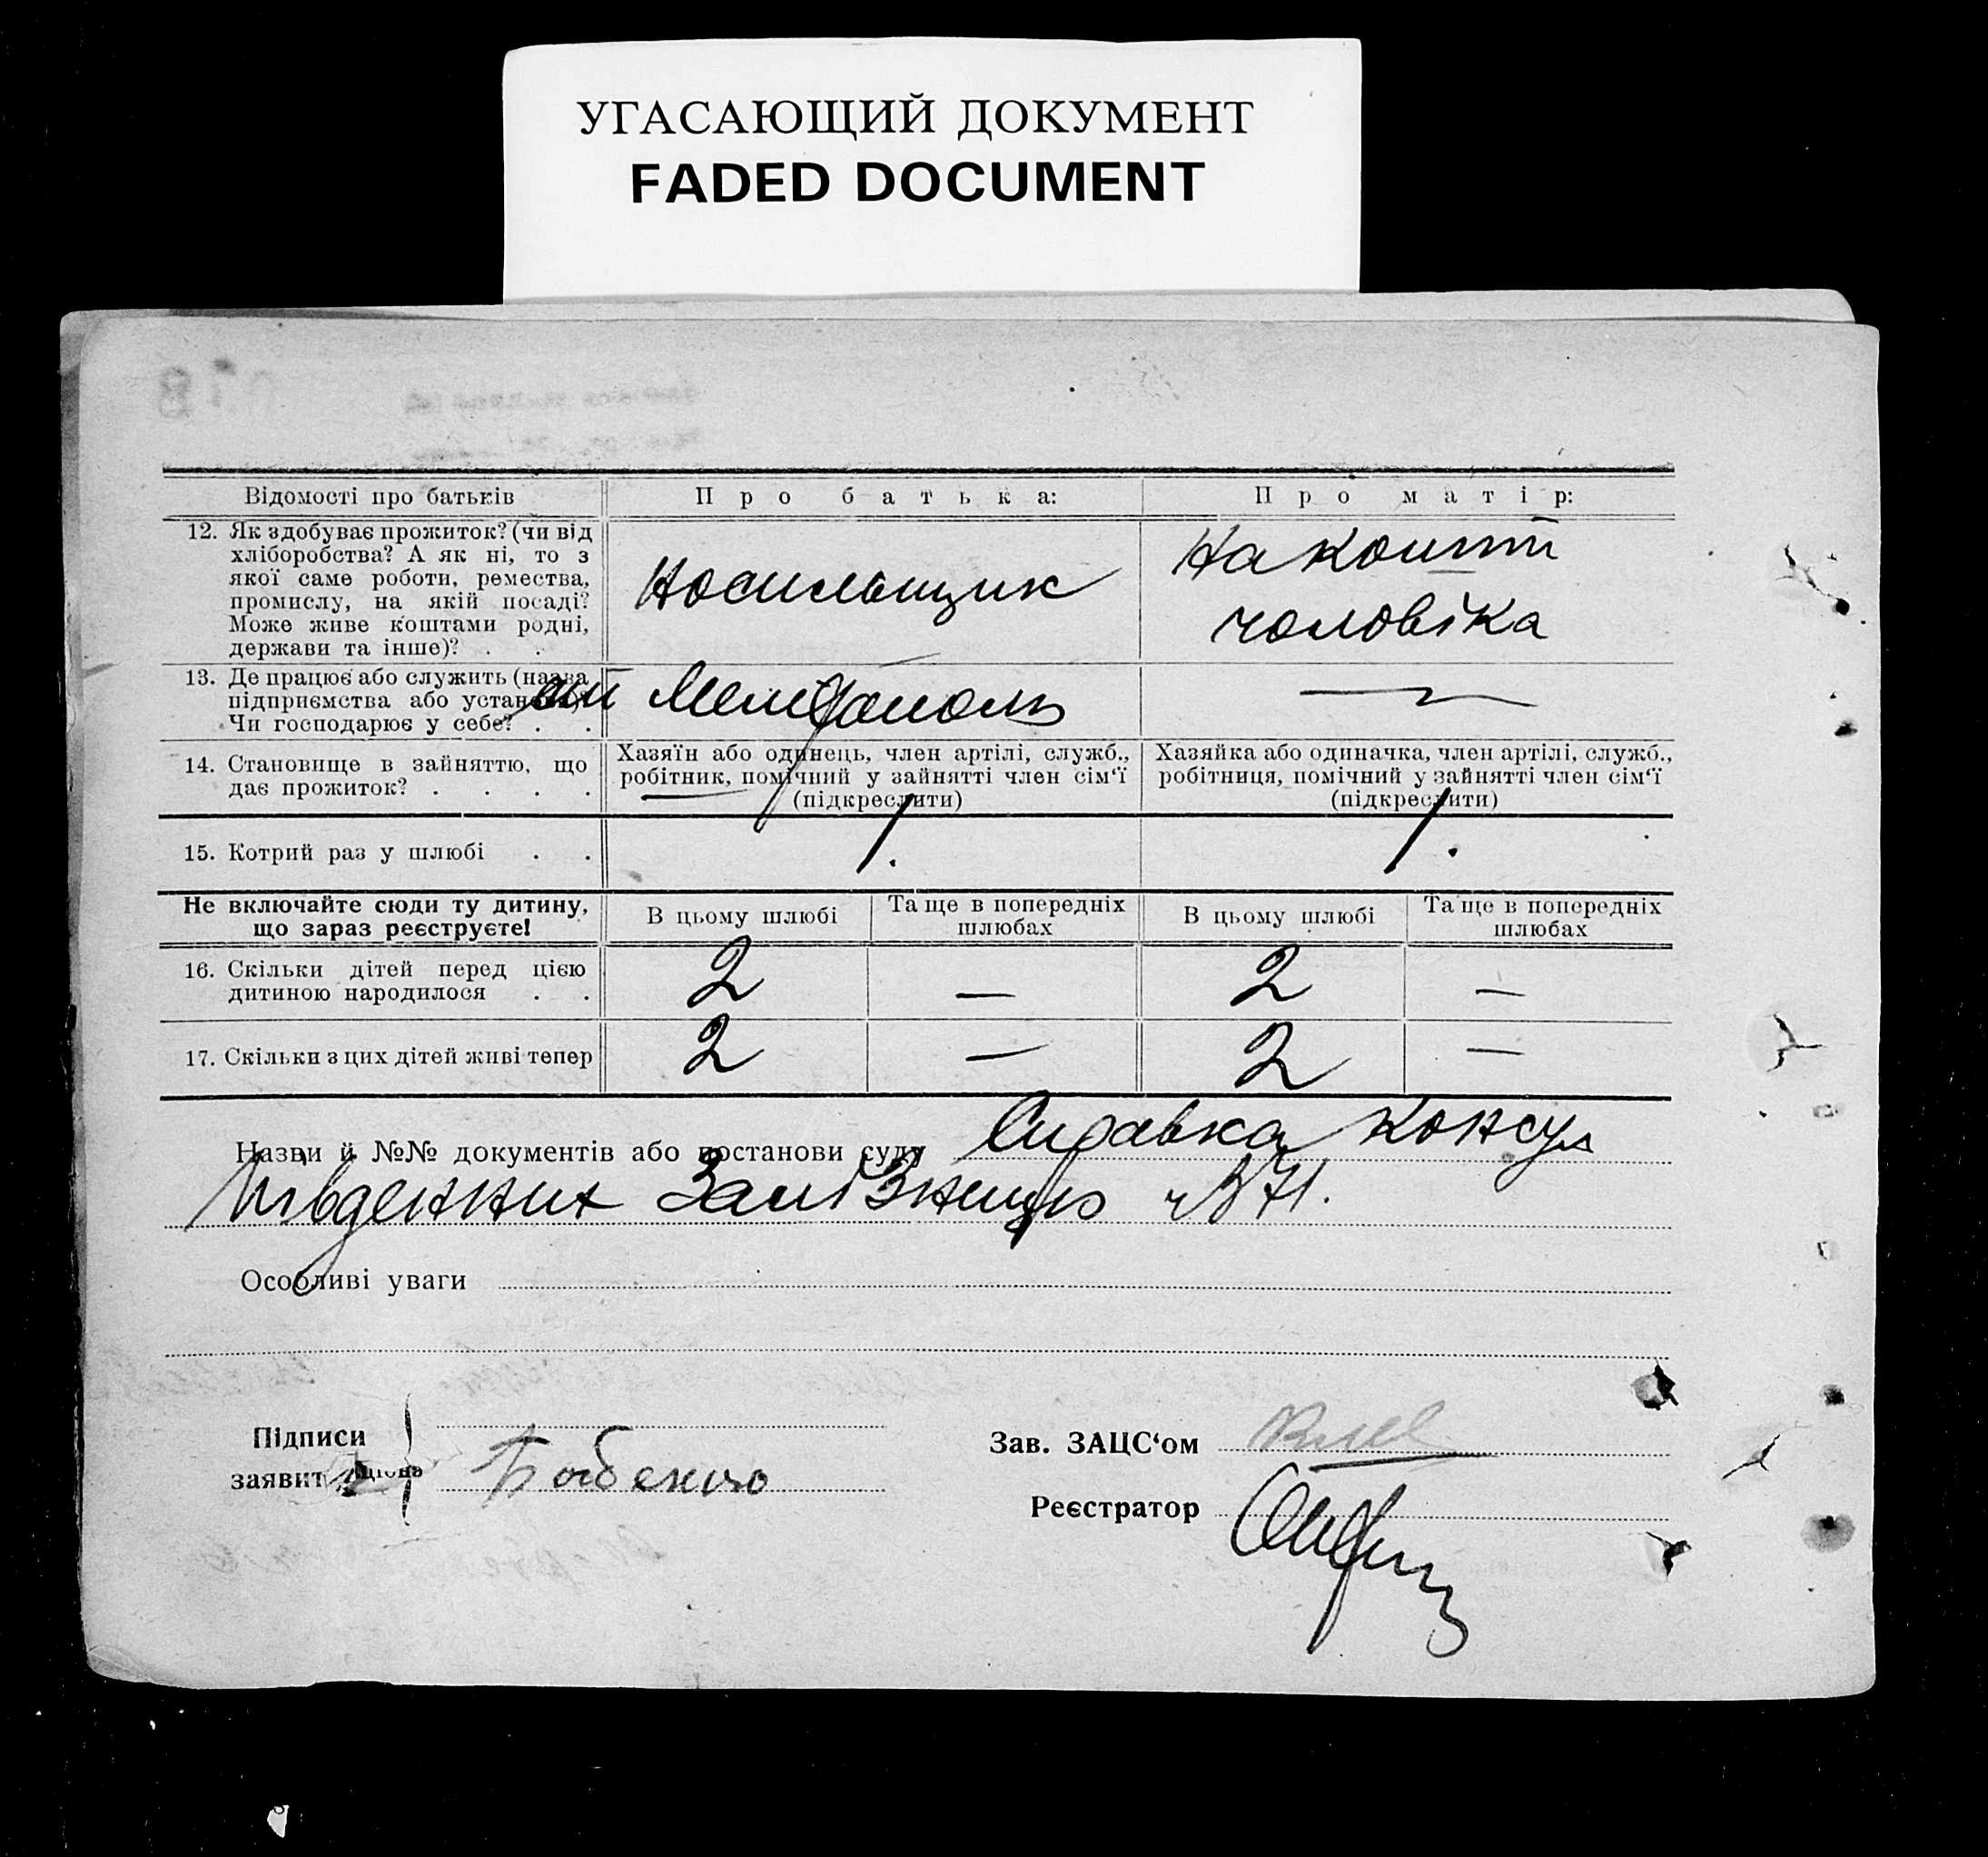 УГАСАЮЩИЙ ДОКУМЕНТ
FADED DOCUMENT
Відомості про батьків
Про батька:
Про матір:
12. Як здобуває прожиток? (чи від
хліборобства? А як ні, то з
якої саме роботи, ремества,
промислу, на якій посаді?
Може живе коштами родні,
держави та інше)? . .
Носильщик
На кошти
чоловіка
13. Де працює або служить (назва
підприємства або установи)?
Чи господарює у себе? . .
ст Мелітополь
—
14. Становище в зайняттю, що
дає прожиток? . . . .
Хазяїн або одинець, член артілі, служб.,
робітник, помічний у зайнятті член сім‘ї
(підкреслити)
Хазяйка або одиначка, член артілі, служб.,
робітниця, помічний у зайнятті член сім‘ї
(підкреслити)
15. Котрий раз у шлюбі . .
1.
1.
Не включайте сюди ту дитину,
що зараз реєструєте!
В цьому шлюбі
Та ще в попередніх
шлюбах
В цьому шлюбі
Та ще в попередніх
шлюбах
16. Скільки дітей перед цією
дитиною народилося . .
2
—
2
—
17. Скільки з цих дітей живі тепер
2
—
2
—
Назви й №№ документів або постанови суду Справка Консул
Південних Залізниць №71.
Особливі уваги
Підписи
заявит
Зав. ЗАЦС‘ом
Реєстратор